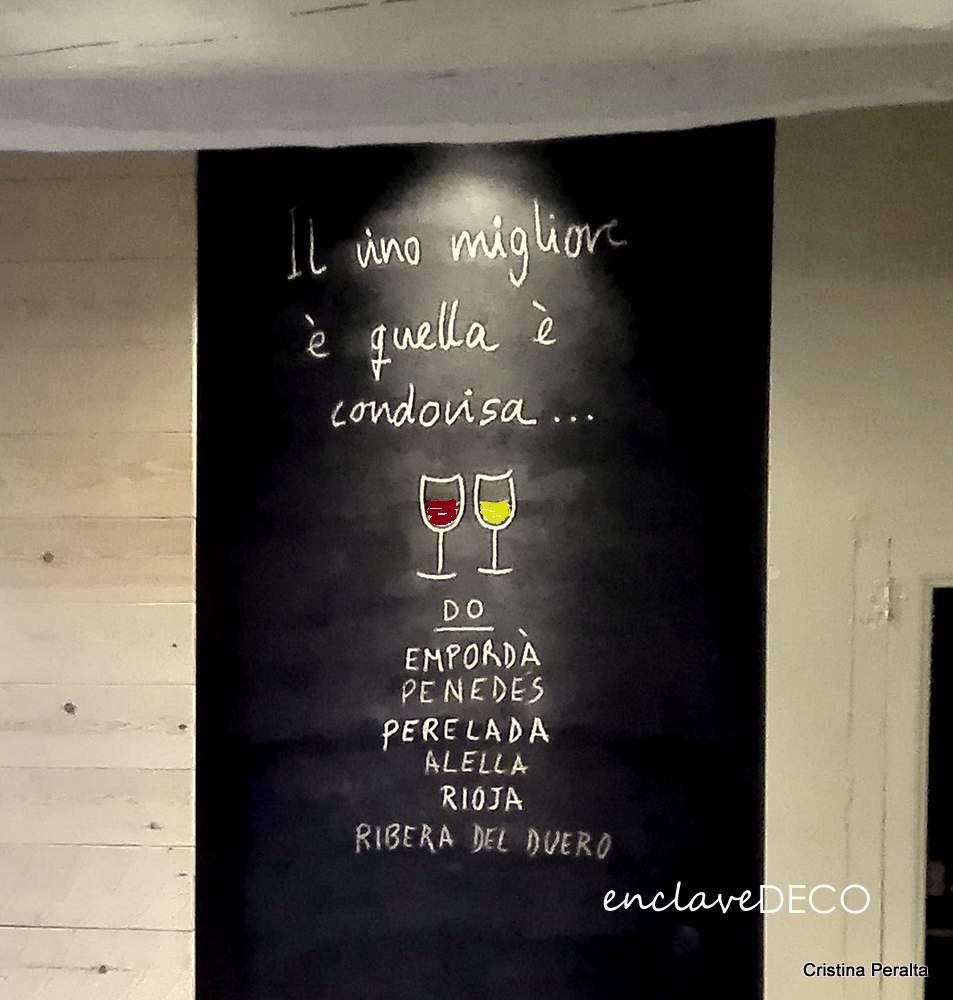 Il vino migliore
è quella è
condovisa...
DO
EMPORDÀ
PENEDÉS
PERELADA
ALELLA
RIOJA
RIBERA DEL DUERO
enclaveDECO
Cristina Peralta